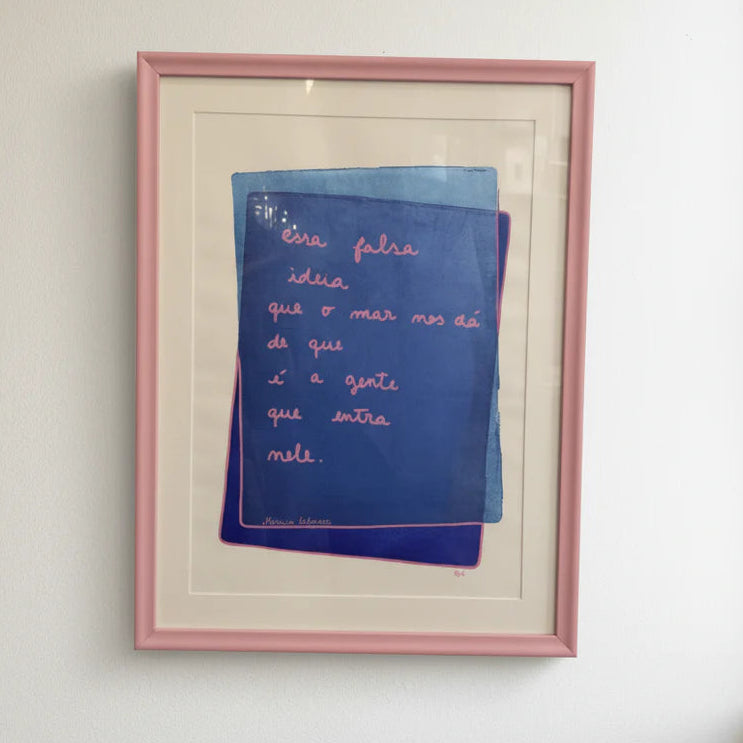 essa falsa
ideia
que o mar nos dá
de que
é a gente
que entra
nele.